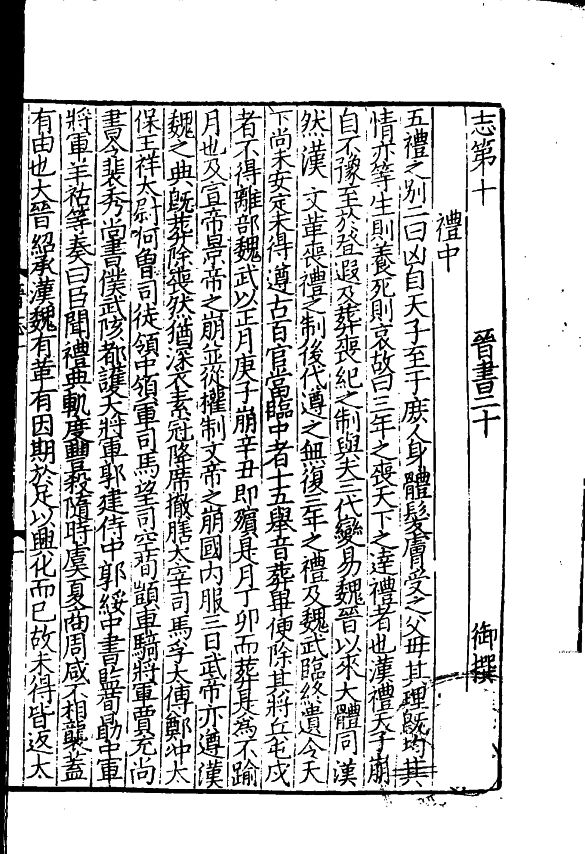 志第十　晉書二十　御撰
禮中
五禮之別二曰凶自天子至于庶人身體髮膚受之父母其理旣均其
情亦等生則養死則哀故曰三年之喪天下之達禮者也漢禮天子崩
自不豫至於登遐及葬喪紀之制與夫三代變易魏晉以來大體同漢
然漢文革喪禮之制後代遵之無復三年之禮及魏武臨終遺令天
下尚未安定未得遵古百官當臨中者十五舉音葬畢便除其將兵屯戍
者不得離部魏武以正月庚子崩辛丑即殯是月丁卯而葬是爲不踰
月也及宣帝景帝之崩並從權制文帝之崩國內服三日武帝亦遵漢
魏之典旣葬除喪然猶深衣素冠降席撤膳太宰司馬孚太傅鄭沖太
保王祥太尉何曾司徒領中領軍司馬望司空荀顗車騎將軍賈充尚
書令裴秀尚書僕武陔都護大將軍郭建侍中郭綏中書監荀勗中軍
將軍羊祜等奏曰臣聞禮典軌度豐殺隨時虞夏商周咸不相襲蓋
有由也大晉紹承漢魏有革有因期於足以興化而已故未得皆返太